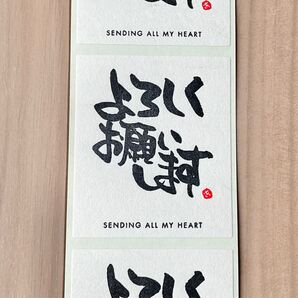 SENDING ALL MY HEART
よろしく
お願い
します
SENDING ALL MY HEART
よろしく